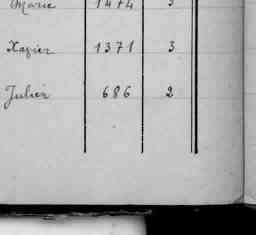 Marie 1474 3
Xavier 1371 3
Julien 686 2